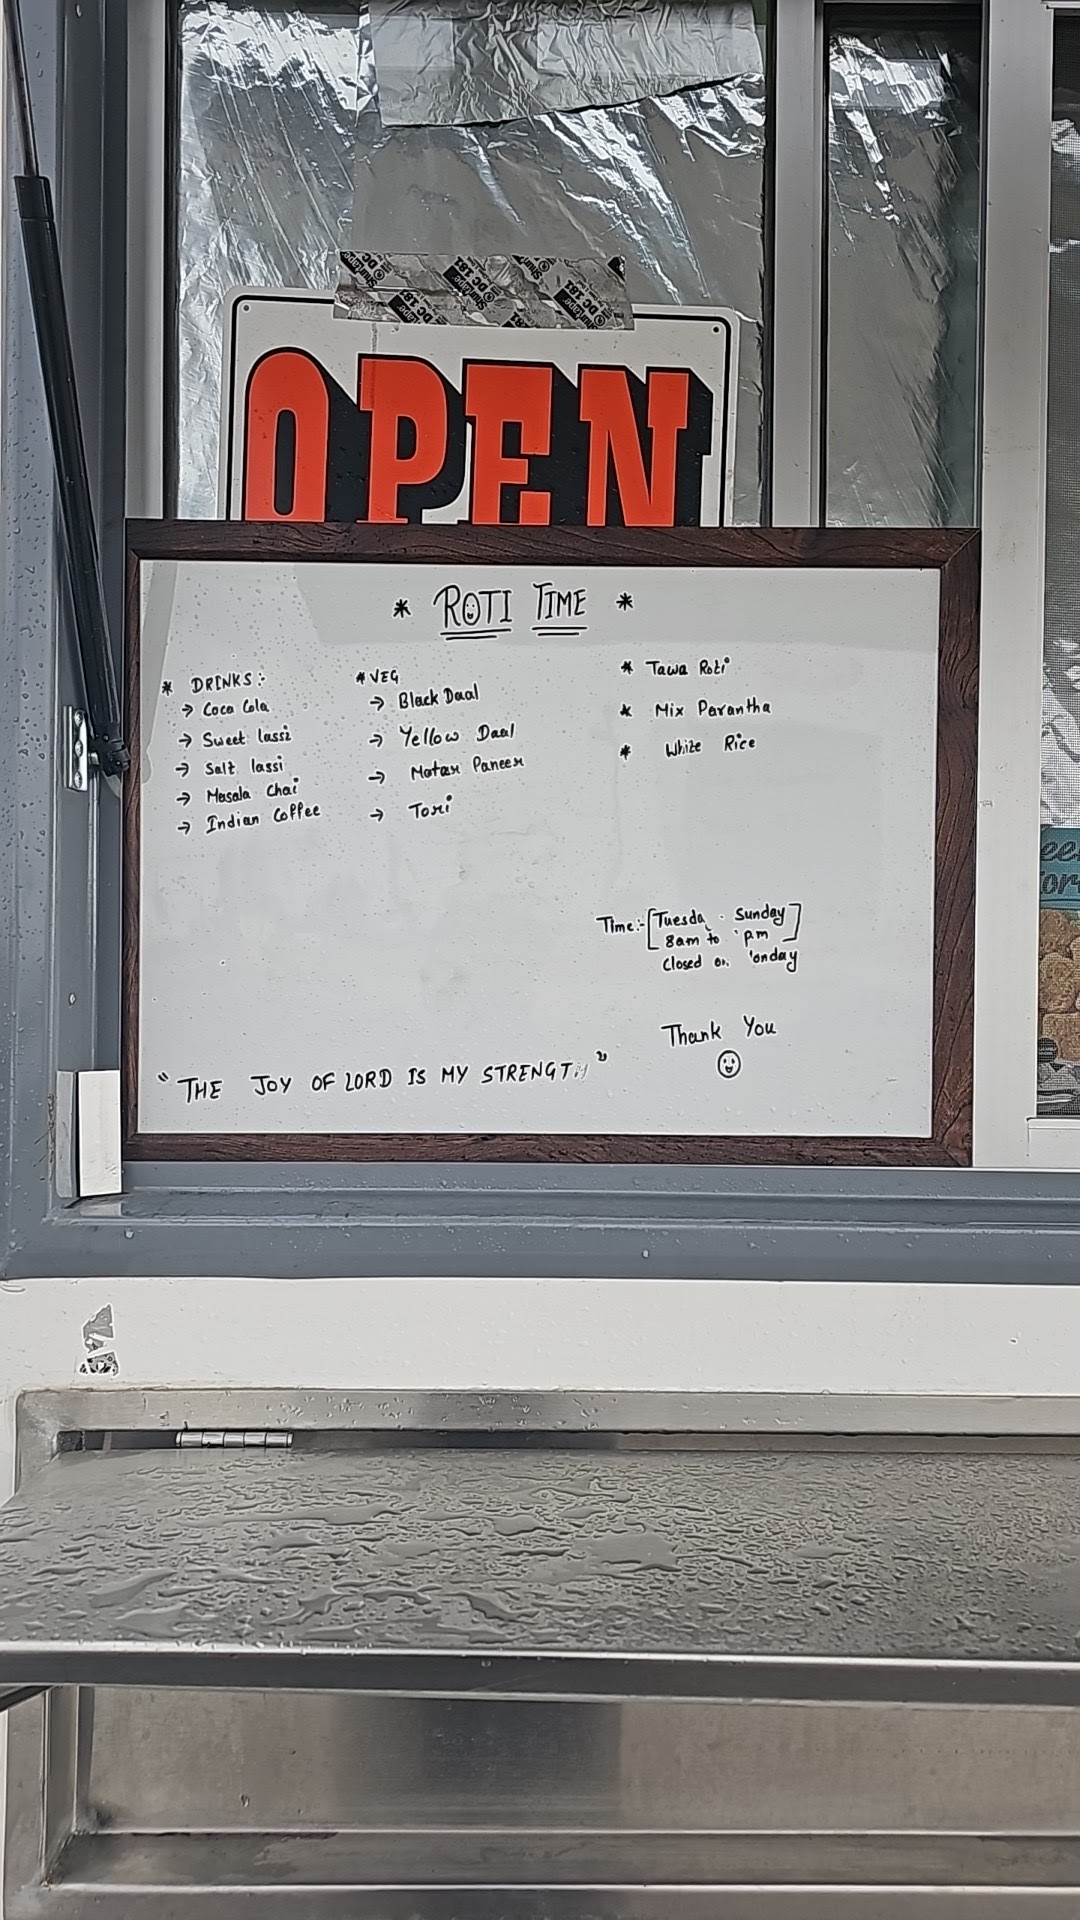 OPEN
* ROTI TIME *
* DRINKS:-
→ Coca Cola
→ Sweet lassi
→ Salt lassi
→ Masala Chai
→ Indian Coffee
* VEG
→ Black Daal
→ Yellow Daal
→ Matar Paneer
→ Tori
* Tawa Roti
* Mix Parantha
* White Rice
Time:-[Tuesda Sunday]
8am to pm
Closed on onday
Thank You
"THE JOY OF LORD IS MY STRENGTH"
Shurtape
DC 181